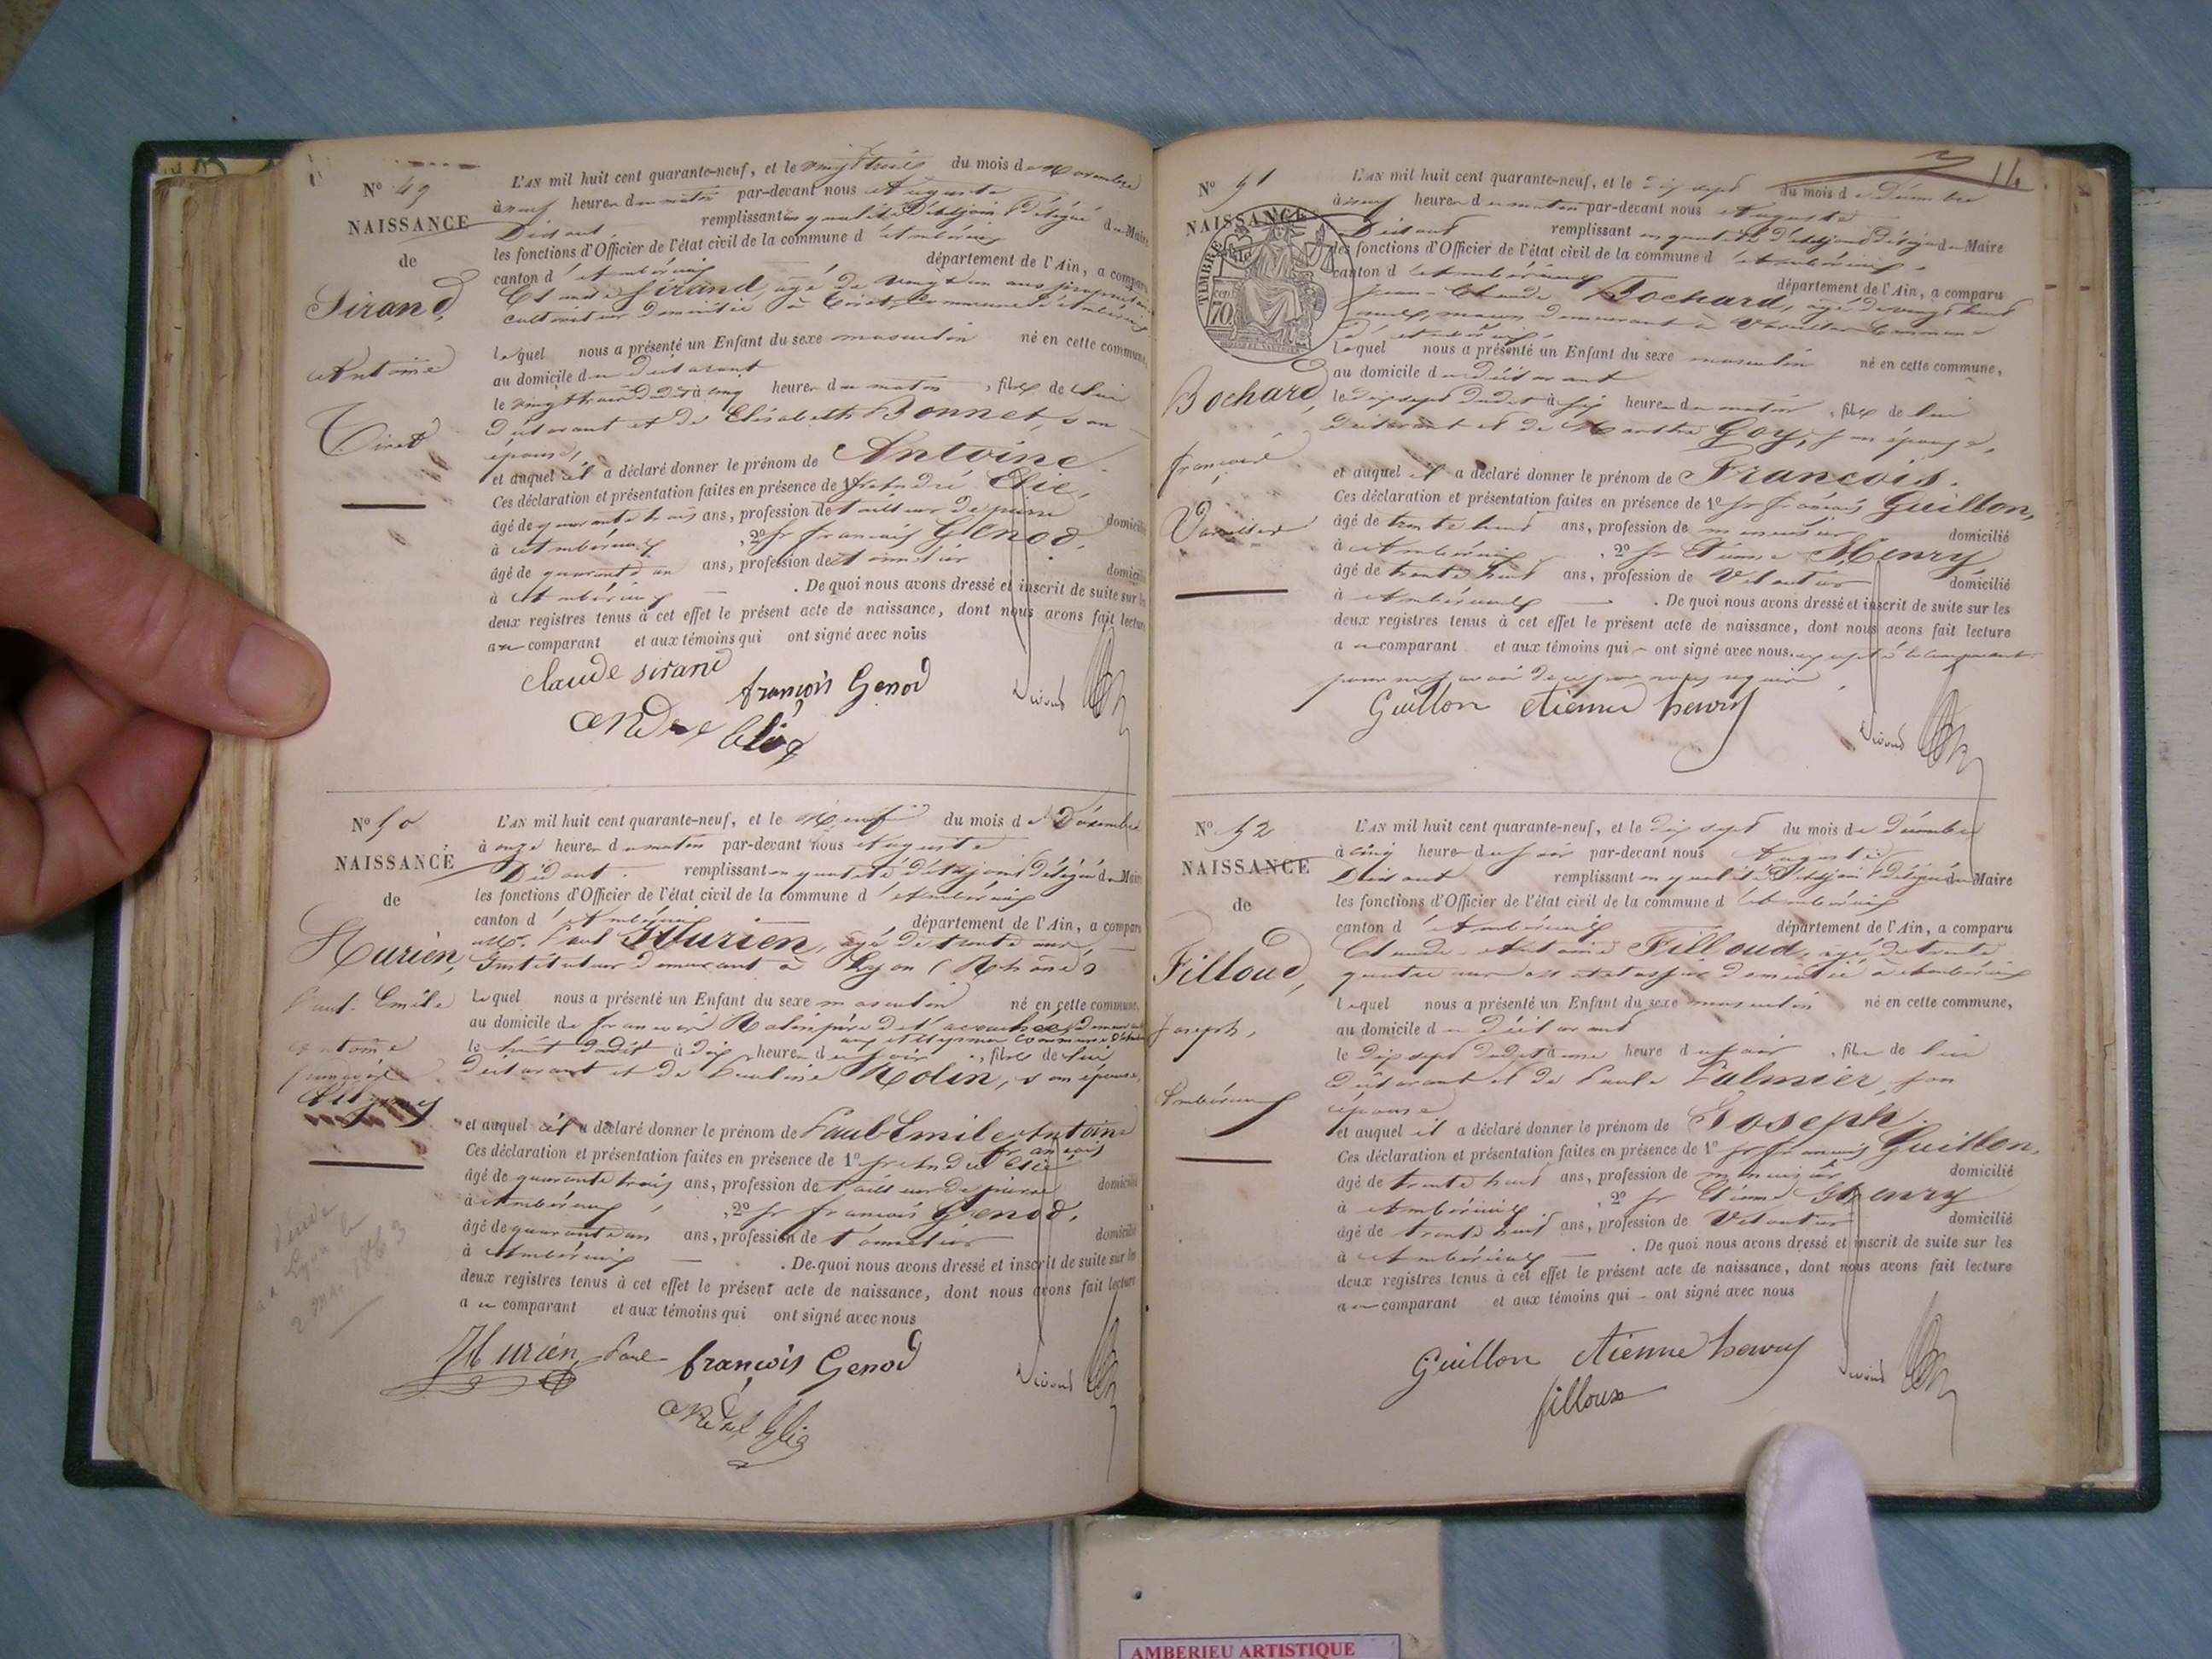 N° 49
NAISSANCE
de
Sirand,
Antoine
Tiret
L'AN mil huit cent quarante-neuf, et le vingt trois du mois de Novembre
à neuf heures du matin par-devant nous Auguste
Didout remplissant en qualité d'Adjoint Délégué du Maire
les fonctions d'Officier de l'état civil de la commune d'Ambérieux
canton d'Ambérieux département de l'Ain, a comparu
Claude Sirand, agé de vingt un ans propriétaire
cultivateur domicilié à Tiret, commune d'Ambérieux
lequel nous a présenté un Enfant du sexe masculin né en cette commune,
au domicile du déclarant
le vingt trois dudit à cinq heures du matin, fils de lui
déclarant et de Elisabeth Bonnet, son
épouse,
et auquel il a déclaré donner le prénom de Antoine.
Ces déclaration et présentation faites en présence de 1° sr André Elie,
âgé de quarante trois ans, profession de tailleur de pierre domicilié
à Ambérieux, 2° sr françois Genod,
âgé de quarante un ans, profession de tonnelier domicilié
à Ambérieux. De quoi nous avons dressé et inscrit de suite sur les
deux registres tenus à cet effet le présent acte de naissance, dont nous avons fait lecture
au comparant et aux témoins qui ont signé avec nous
claude sirand
françois Genod
andré Elie
N° 50
NAISSANCE
de
Hurien,
Paul-Emile
Antoine
françois
L'AN mil huit cent quarante-neuf, et le Neuf du mois de Décembre
à onze heures du matin par-devant nous Auguste
Didout remplissant en qualité d'Adjoint Délégué du Maire
les fonctions d'Officier de l'état civil de la commune d'Ambérieux
canton d'Ambérieux département de l'Ain, a comparu
Mr. Paul Hurien, agé de trente ans
Instituteur demeurant à Lyon (Rhône)
lequel nous a présenté un Enfant du sexe masculin né en cette commune,
au domicile de françois Rolin père de l'accouchée, demeurant
commune d'Ambérieux
le huit dudit à dix heures du soir, fils de lui
déclarant et de Pauline Rolin, son épouse,
et auquel il a déclaré donner le prénom de Paul Emile Antoine
françois
Ces déclaration et présentation faites en présence de 1° sr André Elie
âgé de quarante trois ans, profession de tailleur de pierre domicilié
à Ambérieux, 2° sr françois Genod,
âgé de quarante un ans, profession de tonnelier domicilié
à Ambérieux. De quoi nous avons dressé et inscrit de suite sur les
deux registres tenus à cet effet le présent acte de naissance, dont nous avons fait lecture
au comparant et aux témoins qui ont signé avec nous
Hurien Paul françois Genod
andré Elie
Lyon le
2 mai 1863
14
N° 51
NAISSANCE
TIMBRE
70
Bochard,
françois
Vareilles
L'AN mil huit cent quarante-neuf, et le dix sept du mois de Décembre
à neuf heures du matin par-devant nous Auguste
Didout remplissant en qualité d'Adjoint Délégué du Maire
les fonctions d'Officier de l'état civil de la commune d'Ambérieux
canton d'Ambérieux département de l'Ain, a comparu
Jean-Claude Bochard, agé de vingt huit
ans, maçon demeurant à Vareilles commune
d'Ambérieux
lequel nous a présenté un Enfant du sexe masculin né en cette commune,
au domicile du déclarant
le dix sept dudit à six heures du matin, fils de lui
déclarant et de Marthe Goy, son épouse,
et auquel il a déclaré donner le prénom de François.
Ces déclaration et présentation faites en présence de 1° sr françois Guillon,
âgé de trente huit ans, profession de menuisier domicilié
à Ambérieux, 2° sr Etienne Henry
âgé de trente huit ans, profession de Voiturier domicilié
à Ambérieux. De quoi nous avons dressé et inscrit de suite sur les
deux registres tenus à cet effet le présent acte de naissance, dont nous avons fait lecture
au comparant et aux témoins qui ont signé avec nous, excepté le comparant
pour ne savoir de ce par nous requis
Guillon etienne henry
N° 52
NAISSANCE
de
Filloud,
Joseph,
Ambérieux
L'AN mil huit cent quarante-neuf, et le dix sept du mois de décembre
à cinq heures du soir par-devant nous Auguste
Didout remplissant en qualité d'Adjoint Délégué du Maire
les fonctions d'Officier de l'état civil de la commune d'Ambérieux
canton d'Ambérieux département de l'Ain, a comparu
Claude-Antoine Filloud, agé de trente
quatre ans domicilié à Ambérieux
lequel nous a présenté un Enfant du sexe masculin né en cette commune,
au domicile du déclarant
le dix sept dudit à une heure du soir, fils de lui
déclarant et de Paule Palmier, son
épouse
et auquel il a déclaré donner le prénom de Joseph.
Ces déclaration et présentation faites en présence de 1° sr françois Guillon,
âgé de trente huit ans, profession de menuisier domicilié
à Ambérieux, 2° sr Etienne Henry
âgé de trente huit ans, profession de Voiturier domicilié
à Ambérieux. De quoi nous avons dressé et inscrit de suite sur les
deux registres tenus à cet effet le présent acte de naissance, dont nous avons fait lecture
au comparant et aux témoins qui ont signé avec nous
Guillon etienne henry
filloux
AMBERIEU ARTISTIQUE